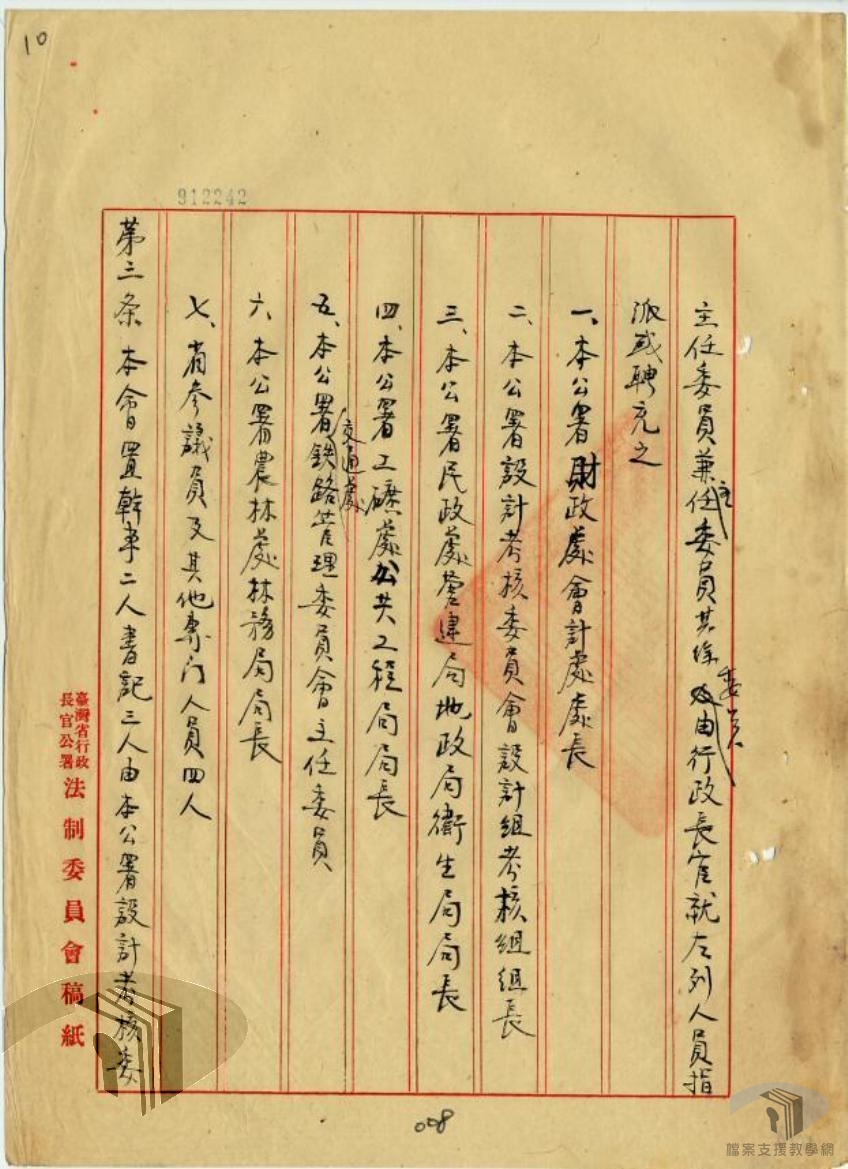 10
912242
主任委員兼主任委員其餘委員由行政長官就左列人員指
派或聘充之
一、本公署財政處會計處處長
二、本公署設計考核委員會設計組考核組組長
三、本公署民政處營建局地政局衛生局局長
四、本公署工礦處公共工程局局長
五、本公署交通處鉄路管理委員會主任委員
六、本公署農林處林務局局長
七、省參議員及其他專门人員四人
第三条 本會置幹事二人書記三人由本公署設計考核委
臺灣省行政長官公署法制委員會稿紙
008
檔案支援教學網